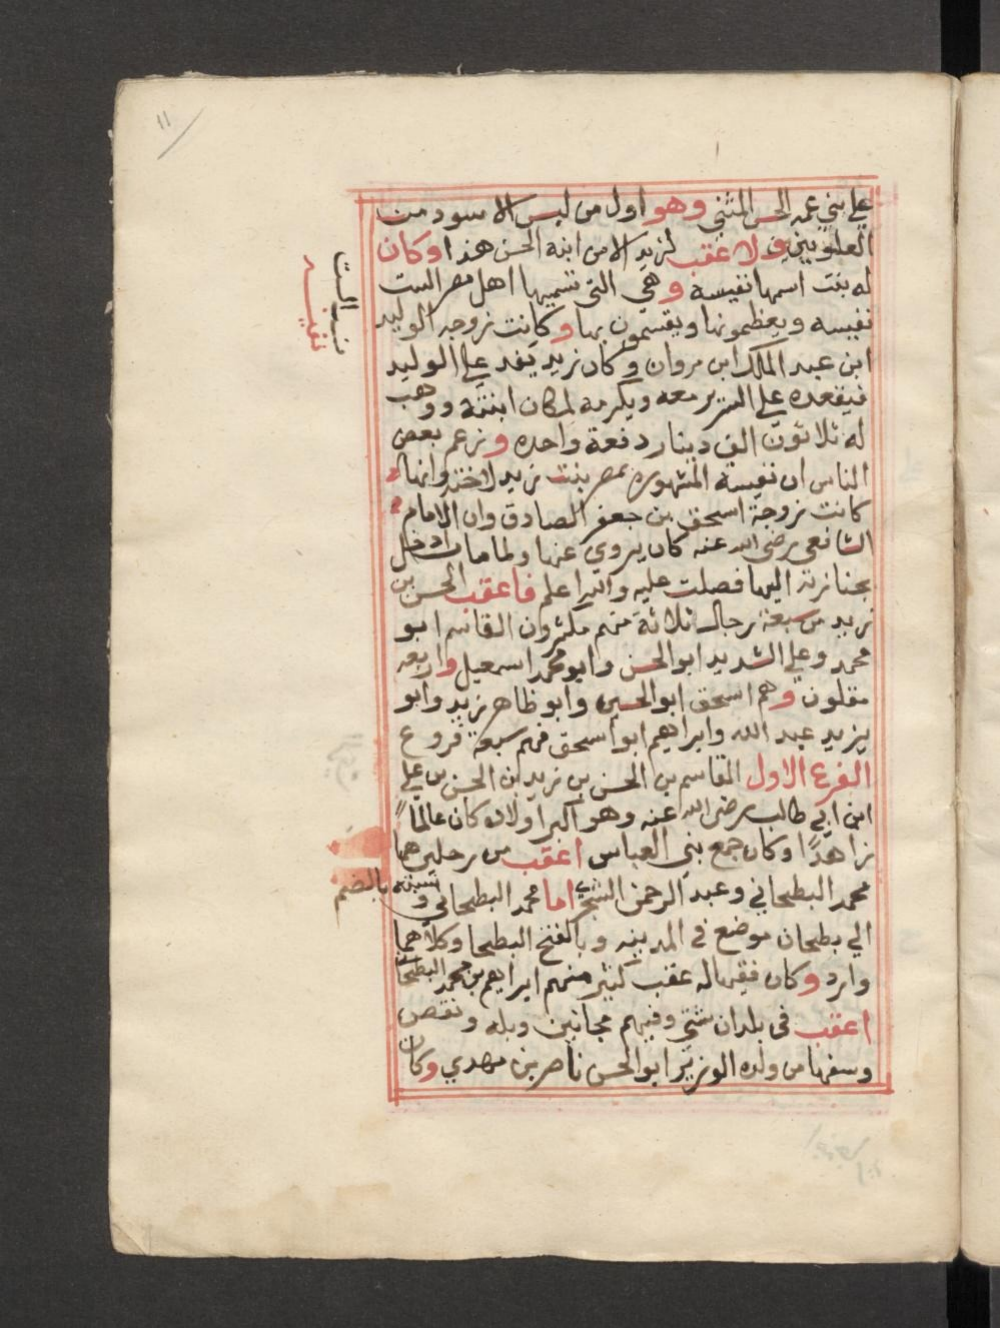 ١١
علي بني عمه الحسن المثنى وهو اول من لبس الاسود من
العلويين ولا عقب لزيد الا من ابنه الحسن هذا وكان
له بنت اسمها نفيسة وهي التي تسميها اهل مصر الست
نفيسه ويعظمونها ويقسمون بها وكانت زوجه الوليد
ابن عبد الملك ابن مروان وكان زيد يفد علي الوليد
فيقعده علي السرير معه ويكرمه لمكان ابنته ووهب
له ثلاثون الف دينار دفعة واحده وزعم بعض
الناس ان نفيسة المشهوره بمصر بنت زيد لاخته وانها
كانت زوجة اسحق بن جعفر الصادق وان الامام
الشافعي رضي الله عنه كان يروي عنها ولما مات ادخل
بجنازته اليها فصلت عليه واعلم فاعقب الحسن بن
زيد من سبعة رجال ثلاثة منهم مكثرون القاسم ابو
محمد وعلي الشديد ابو الحسن وابو محمد اسمعيل واربعه
مقلون وهم اسحق ابو الحسين وابو طاهر زيد وابو
يزيد عبد الله وابراهيم ابو اسحق فهم سبعة فروع
الفرع الاول القاسم بن الحسن بن زيد بن الحسن بن علي
ابن ابي طالب رضي الله عنه وهو اكبر اولاده كان عالمًا
زاهدًا وكان جمع بني العباس اعقب من رجلين هما
محمد البطحاني وعبد الرحمن الشجري اما محمد البطحاني ونسبته بالضم
الي بطحان موضع في المدينه وبالفتح البطحا وكلاهما
وارد وكان فقيها له عقب كثير منهم ابراهيم بن محمد البطحاني
اعقب في بلدان شتي وفيهم مجانين وبله ونقص
وسفها من ولده الوزير ابو الحسن ناصر بن مهدي وكان
نسب الست
نفيسه